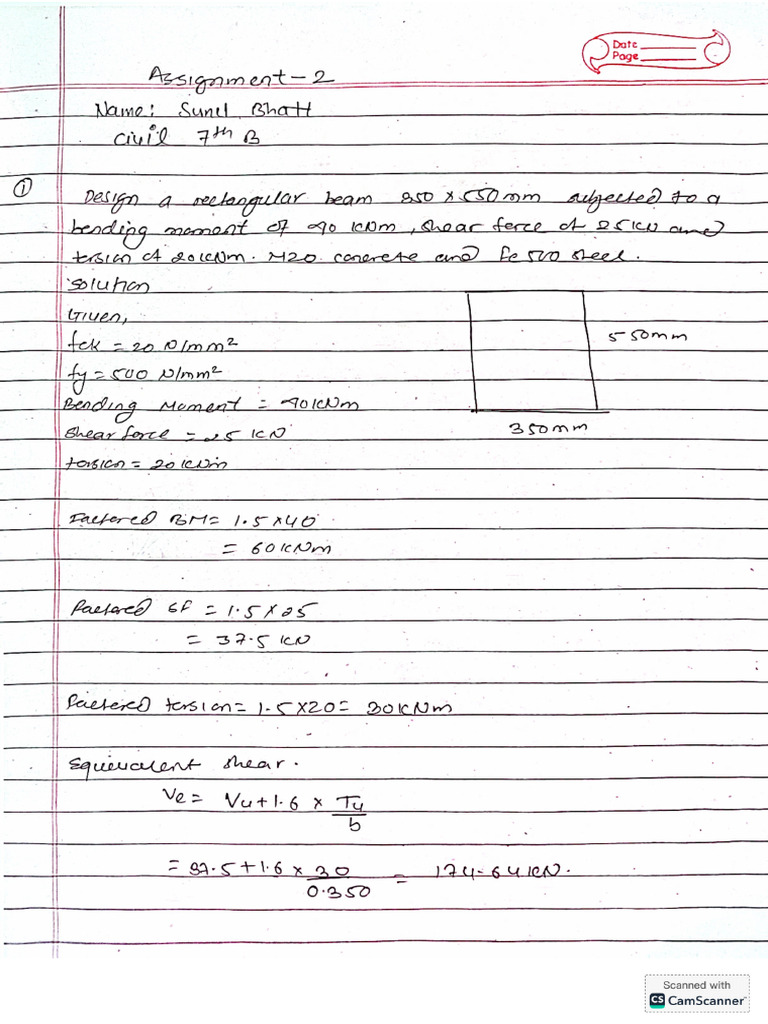 Date
Page
Assignment-2
Name: Sunil Bhatt
Civil 7th B
① Design a rectangular beam 350 x 550 mm subjected to a
bending moment of 40 KNm, shear force of 25 KN and
torsion of 20 KNm. M20 concrete and Fe 500 steel.
Solution
Given,
fck = 20 N/mm²
fy = 500 N/mm²
Bending Moment = 40 KNm
Shear force = 25 KN
torsion = 20 KNm
550mm
350mm
Factored BM = 1.5 x 40
= 60 KNm
Factored SF = 1.5 x 25
= 37.5 KN
Factored torsion = 1.5 x 20 = 30 KNm
Equivalent shear.
Ve = Vu + 1.6 x Tu/b
= 37.5 + 1.6 x 30/0.350 = 174.64 KN.
Scanned with
CS CamScanner